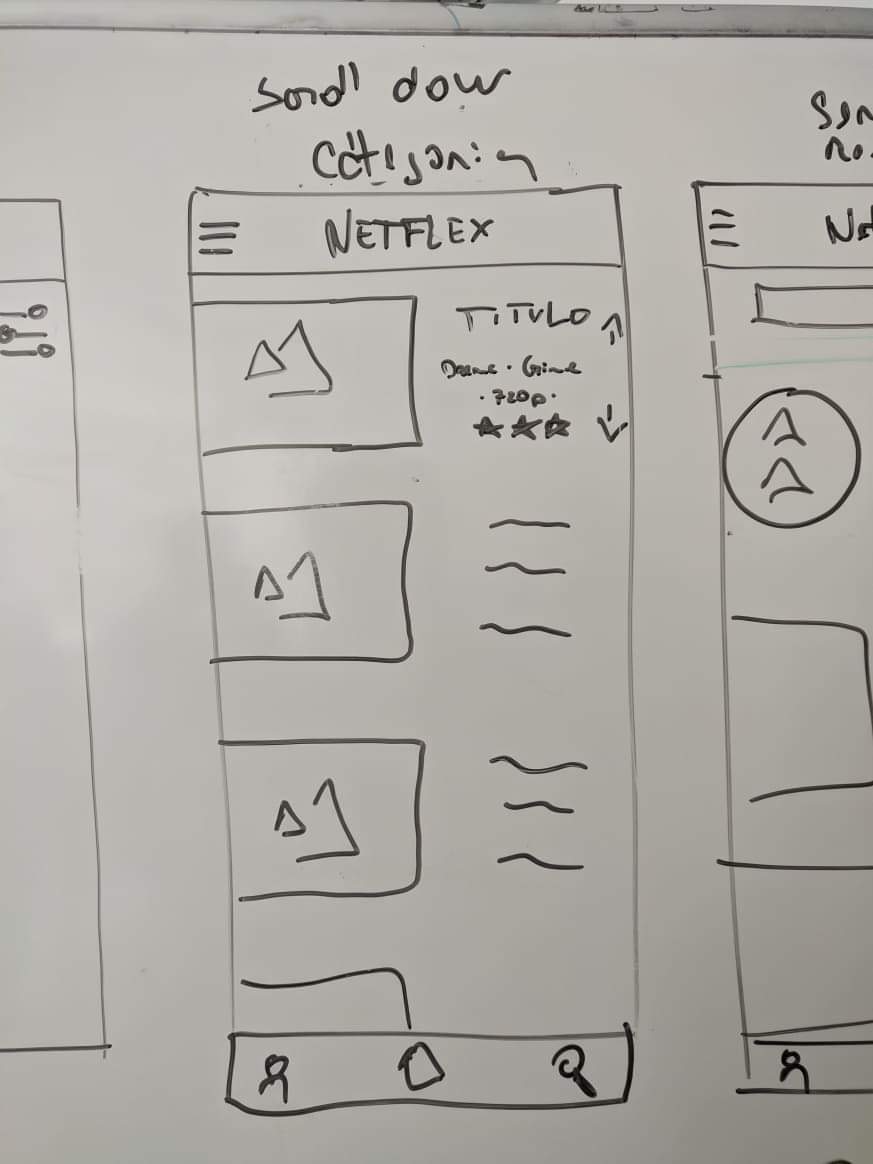 Scroll dow
Categoria
NETFLEX
TITULO
Drama · Crime
· 720p ·